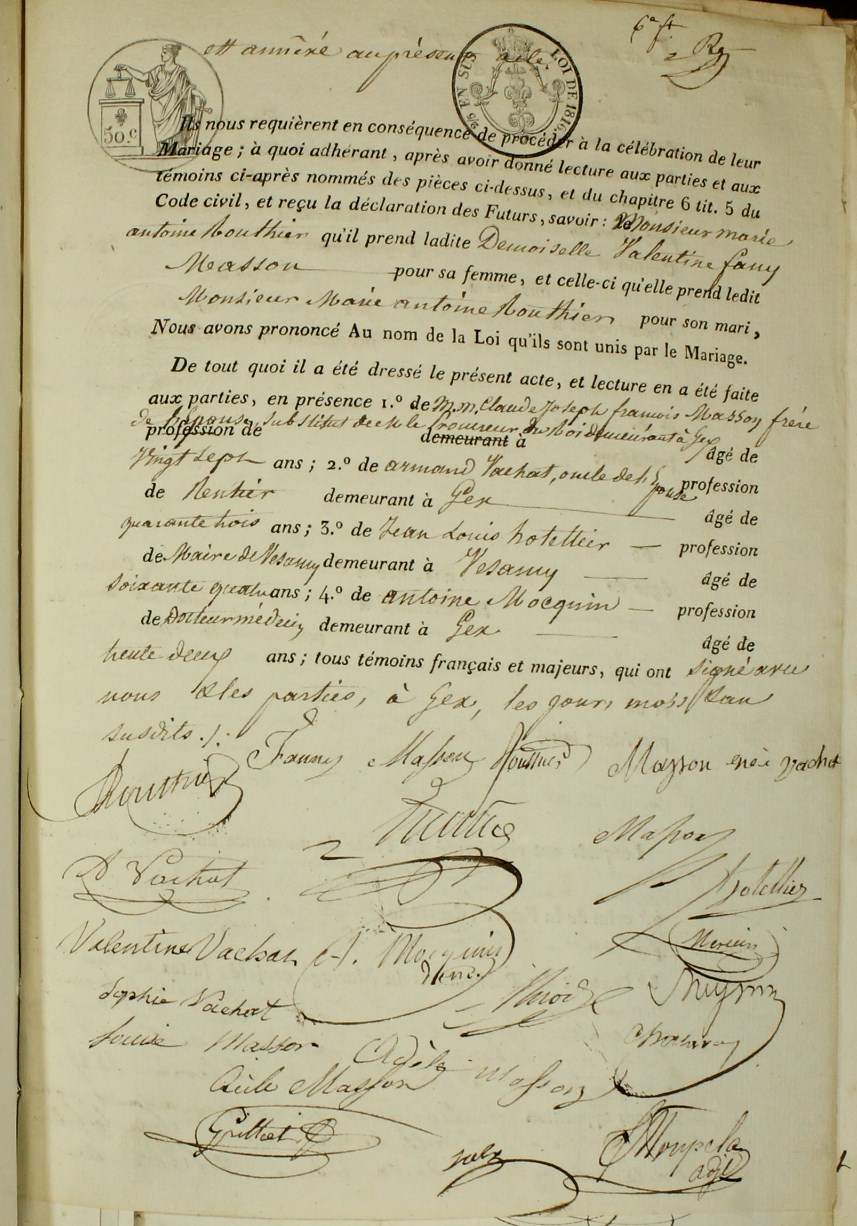 6e ft.
est annéxé au présent acte,
50.c
EN SUS
LOI DE 1816.
Ils nous requièrent en conséquence de procéder à la célébration de leur
Mariage ; à quoi adhérant, après avoir donné lecture aux parties et aux
témoins ci-après nommés des pièces ci-dessus, et du chapitre 6 tit. 5 du
Code civil, et reçu la déclaration des Futurs, savoir : Monsieur marie
antoine Routhier qu'il prend ladite Demoiselle Valentine fany
Masson pour sa femme, et celle-ci qu'elle prend ledit
Monsieur Marie antoine Routhier pour son mari,
Nous avons prononcé Au nom de la Loi qu'ils sont unis par le Mariage.
De tout quoi il a été dressé le présent acte, et lecture en a été faite
aux parties, en présence 1.º de M.m. Claude Joseph francois Masson frére
de l'épouse, substitut de M le Procureur du Roi demeurant à Gex
profession de demeurant à âgé de
Vingt sept ans ; 2.º de armand Vachat, oncle de l'Epouse profession
de Rentier demeurant à Gex âgé de
quarante trois ans ; 3.º de Jean Louis hotellier profession
de Maire de Vesancy demeurant à Vesancy âgé de
soixante quatre ans ; 4.º de antoine Mocquin profession
de Docteur médecin demeurant à Gex âgé de
trente deux ans ; tous témoins français et majeurs, qui ont signé avec
nous & les parties, à Gex, les jours, mois & an
susdits ./.
Routhier Fanny Masson Masson née Vachat
Masson
A Vachat hotellier
Valentine Vachat A. Mocquin Mercier
Sophie Vachat
Louise Masson Adèle Masson
Masson